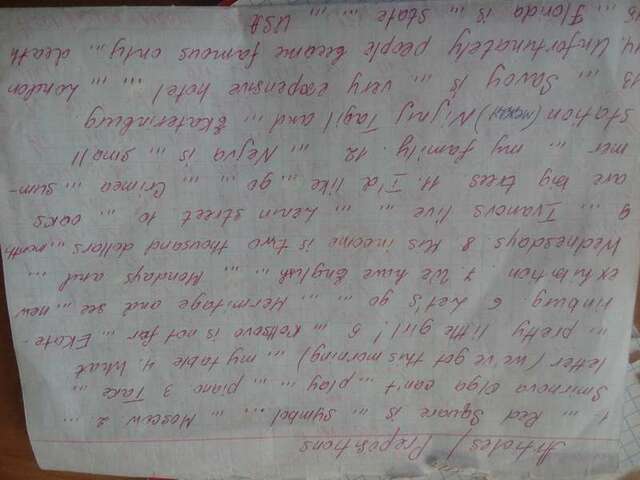 Articles / Prepositions
1. ... Red Square is ... symbol ... ... Moscow 2. ...
Smirnova Olga can't ... play ... ... piano. 3 Take ...
letter (we've got this morning) ... my table 4. What
... pretty little girl! 5 ... Koltsovo is not far ... Ekate-
rinburg. 6. Let's go ... ... Hermitage and see ... new
exhibition. 7. We have English ... ... Mondays and ...
Wednesdays. 8 His income is two thousand dollars ... month
9 ... Ivanovs live ... ... Lenin street. 10 ... oaks
are big trees. 11. I'd like ... go ... ... Crimea ... sum-
mer ... my family. 12 ... Nejva is ... small
station (между) Nijnij Tagil and ... Ekaterinburg
13 ... Savoy is ... very expensive hotel ... ... London
14. Unfortunately people became famous only ... death
15 ... Florida is ... state ... ... USA